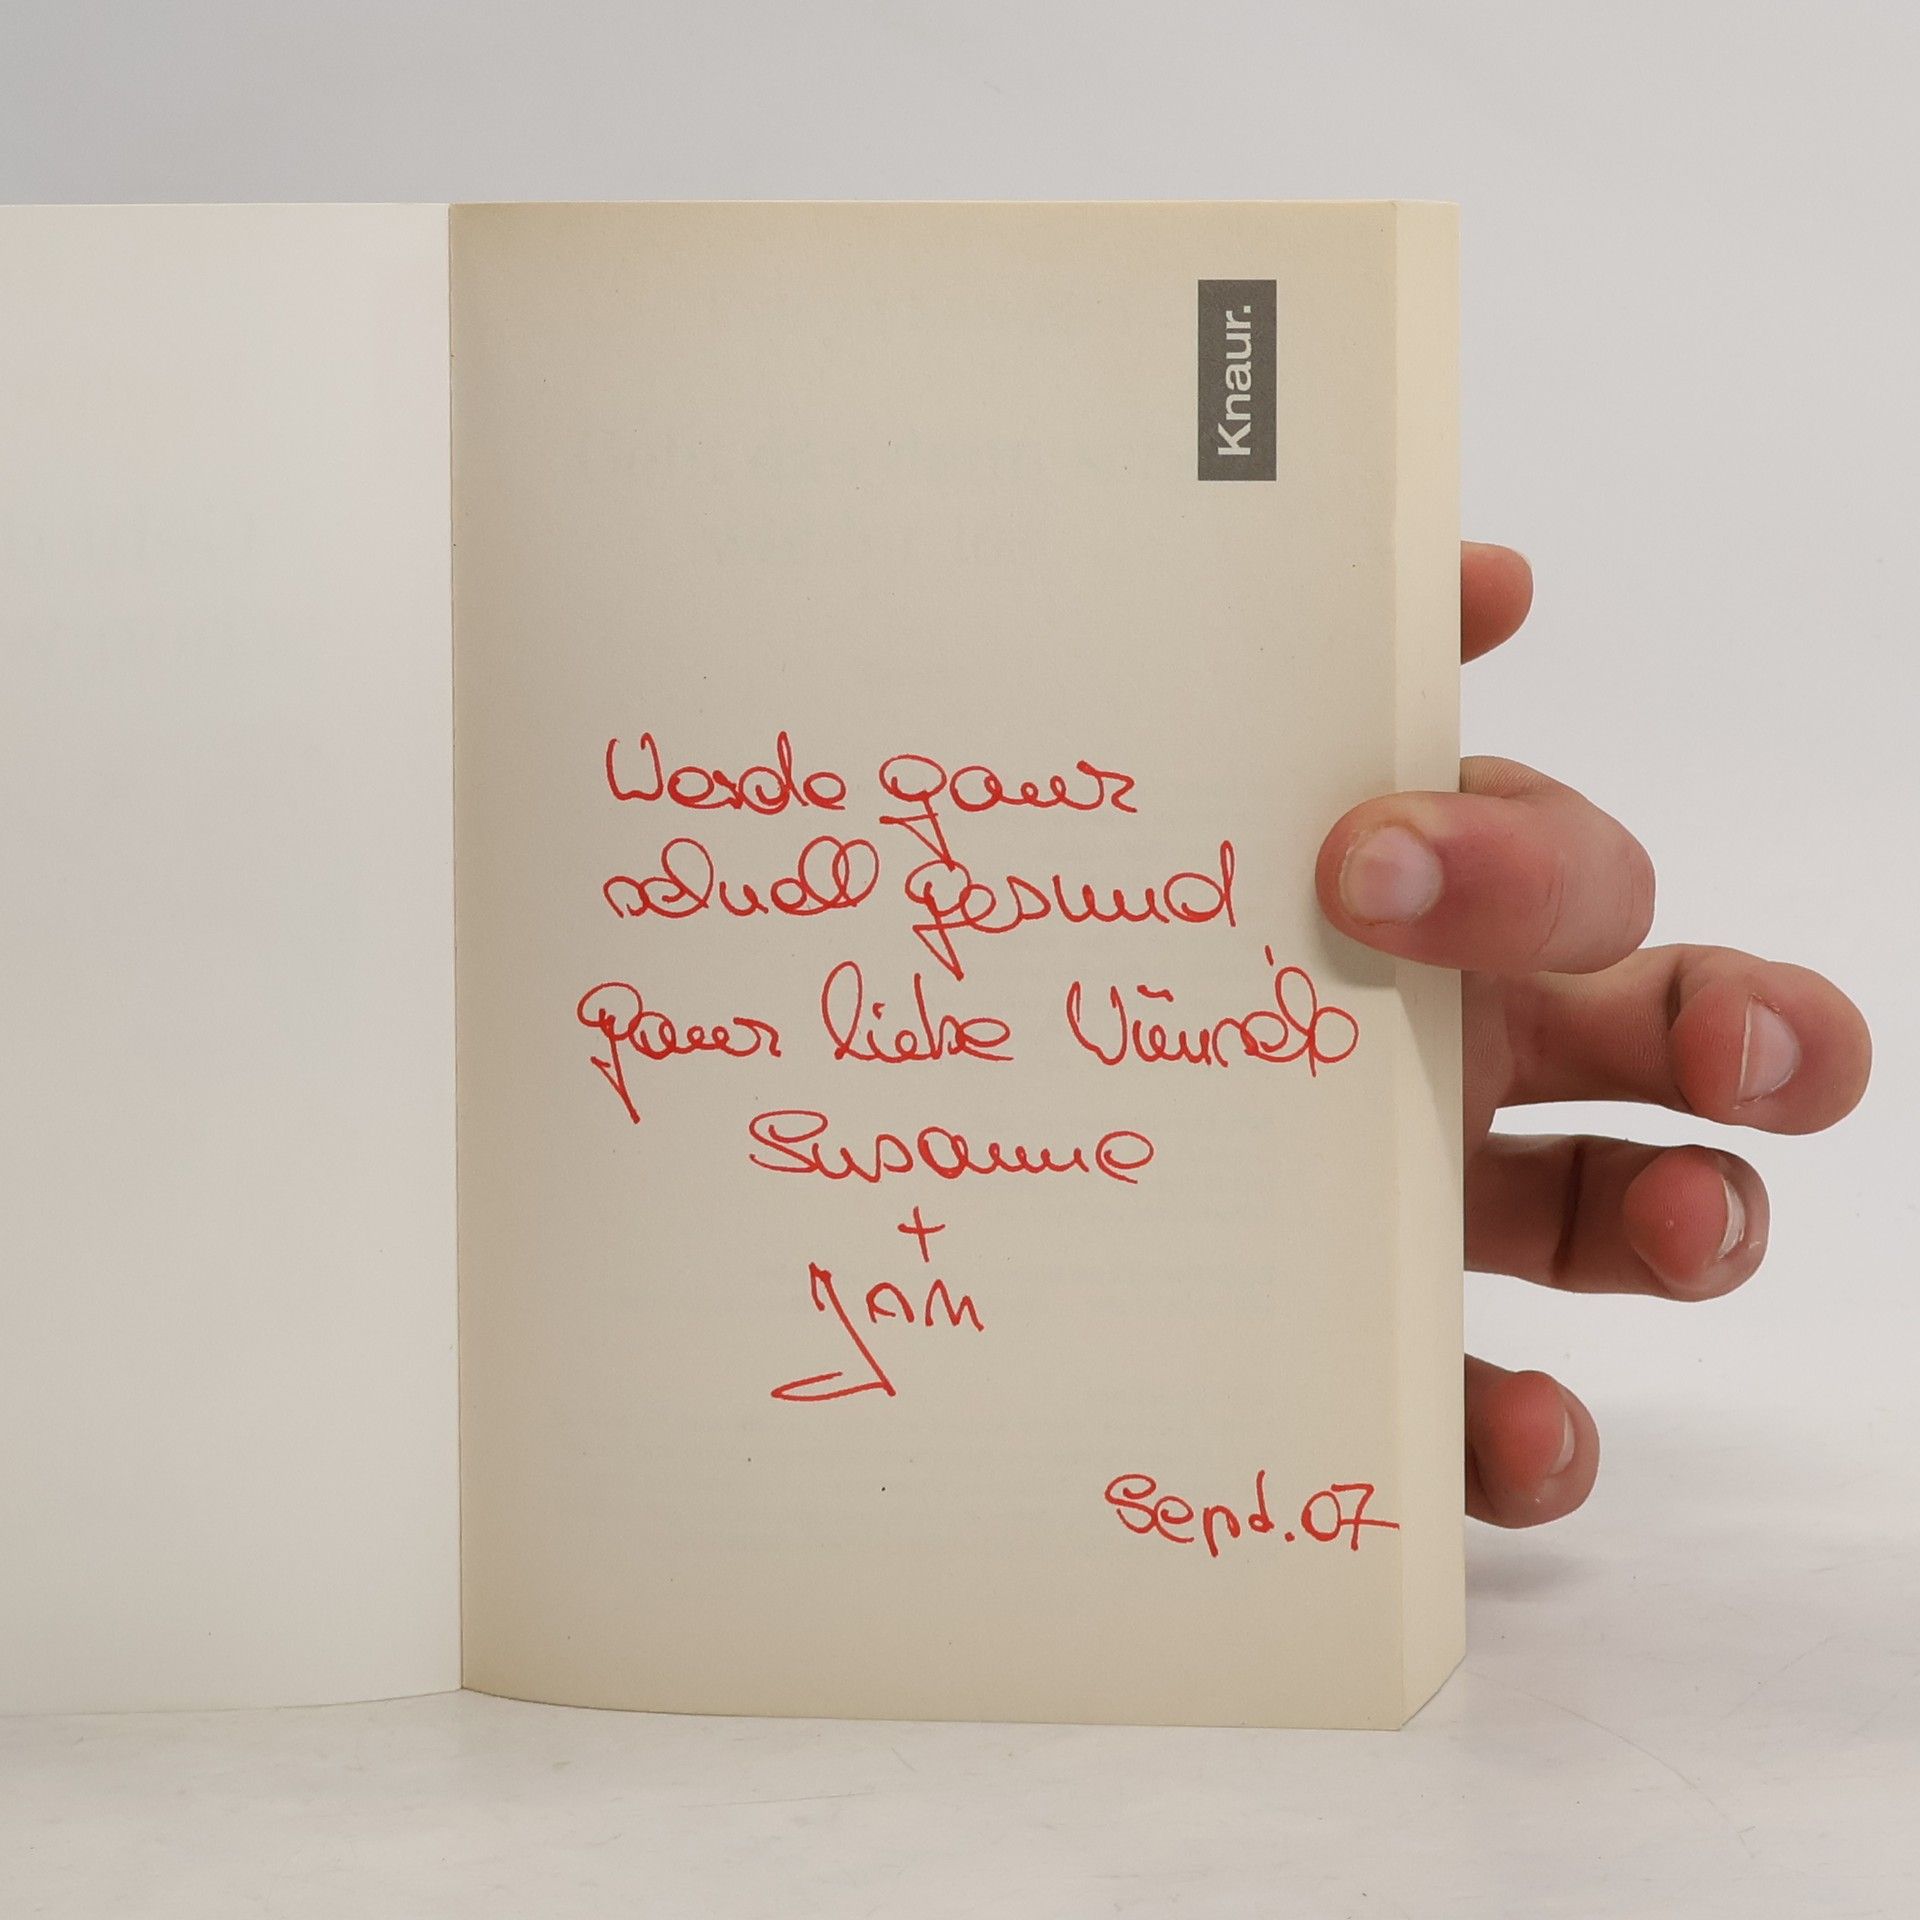 Knaur.
Werde ganz
schnell gesund
ganz liebe Wünsche
Susanne
+
JAN
Sept. 07